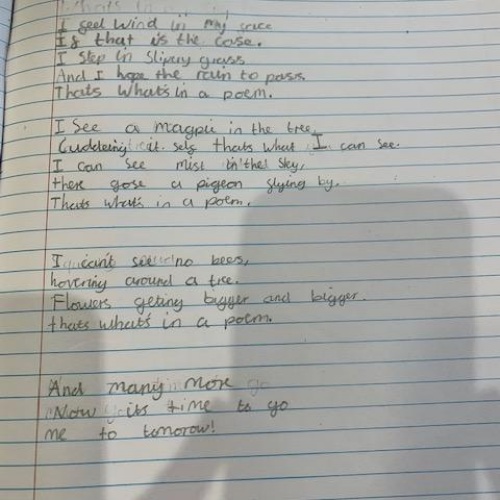 Whats in
I feel wind in my
If that is the case.
I step in slipery grass
And I hope the rain to pass.
Thats what's in a poem.
I See a magpie in the tree,
Cuddeling it self thats what I can see.
I can see mist in the sky,
there gose a pigeon flying by.
Thats what's in a poem.
I can't see no bees,
hovering around a tree.
Flowers geting bigger and bigger.
thats what's in a poem.
And many more
Now its time to go
me to tomorow!